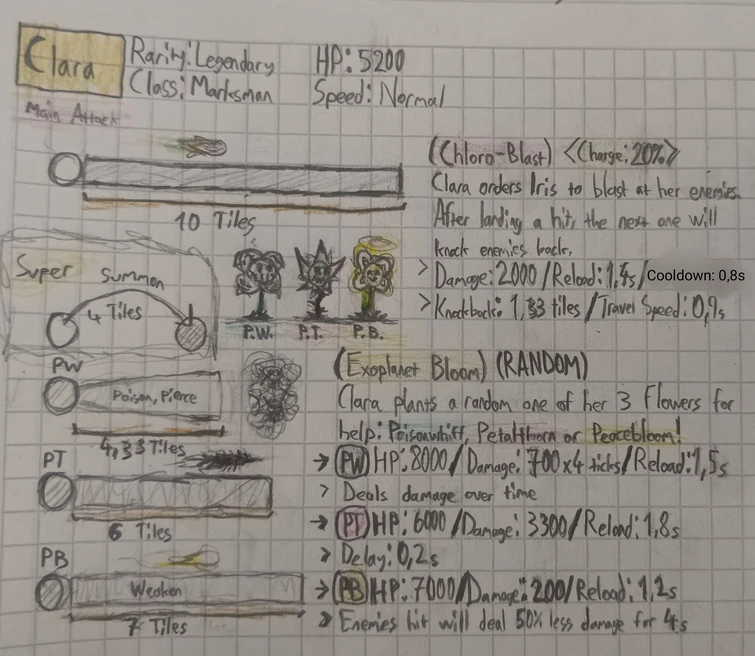 Clara
Rarity: Legendary
HP: 5200
Class: Marksman
Speed: Normal
Main Attack
10 Tiles
(Chloro-Blast) <Charge: 20%>
Clara orders Iris to blast at her enemies.
After landing a hit, the next one will
knock enemies back.
> Damage: 2000 / Reload: 1,4s / Cooldown: 0,8s
> Knockback: 1,33 tiles / Travel Speed: 0,9s
Super
Summon
4 Tiles
P.W. P.T. P.B.
(Exoplanet Bloom) (RANDOM)
Clara plants a random one of her 3 flowers for
help: Poisonwhiff, Petalthorn or Peacebloom!
PW
Poison, Pierce
4,33 Tiles
→ PW HP: 8000 / Damage: 700x4 ticks / Reload: 1,5s
> Deals damage over time
PT
6 Tiles
→ PT HP: 6000 / Damage: 3300 / Reload: 1,8s
> Delay: 0,2s
PB
Weaken
7 Tiles
→ PB HP: 7000 / Damage: 200 / Reload: 1,2s
> Enemies hit will deal 50% less damage for 4s